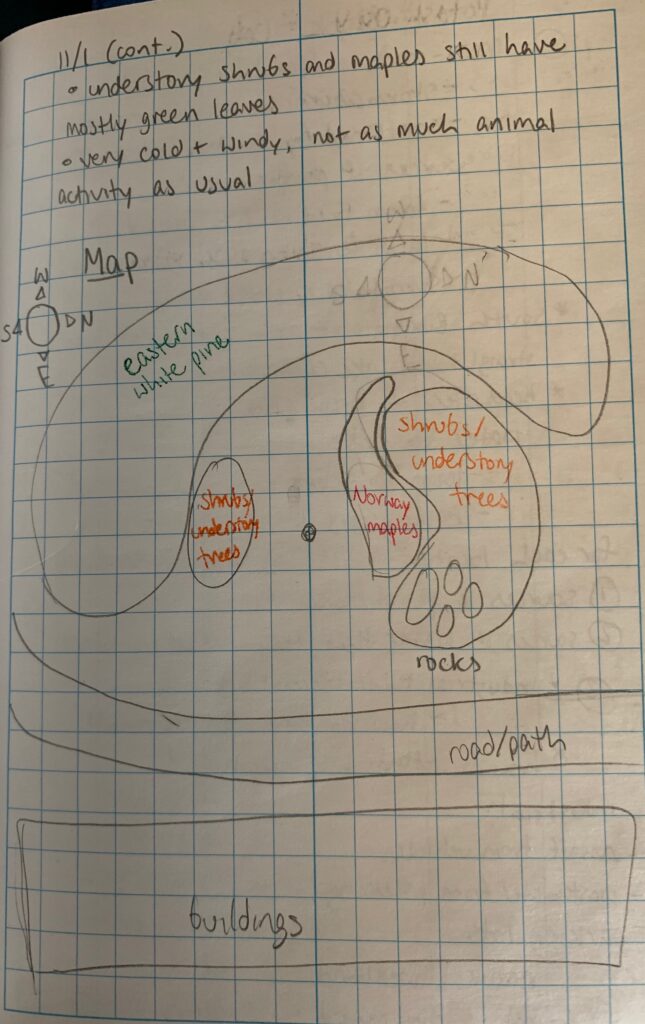 11/1 (cont.)
• understory shrubs and maples still have
mostly green leaves
• very cold + windy, not as much animal
activity as usual
Map
W
S N
E
W
N
E
eastern
white pine
shrubs/
understory
trees
Norway
maples
shrubs/
understory
trees
rocks
road/path
buildings